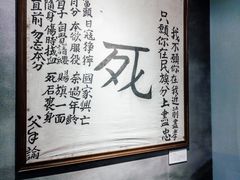 我不願你在我近前盡孝
只願你在民族分上盡忠
死
當頭日寇猙獰 國家興亡
有分本欲服役 奈過年齡
子自覺請纓 賜旗一面
隨身傷時拭血 死后裹身
直前勿忘本分
父手諭